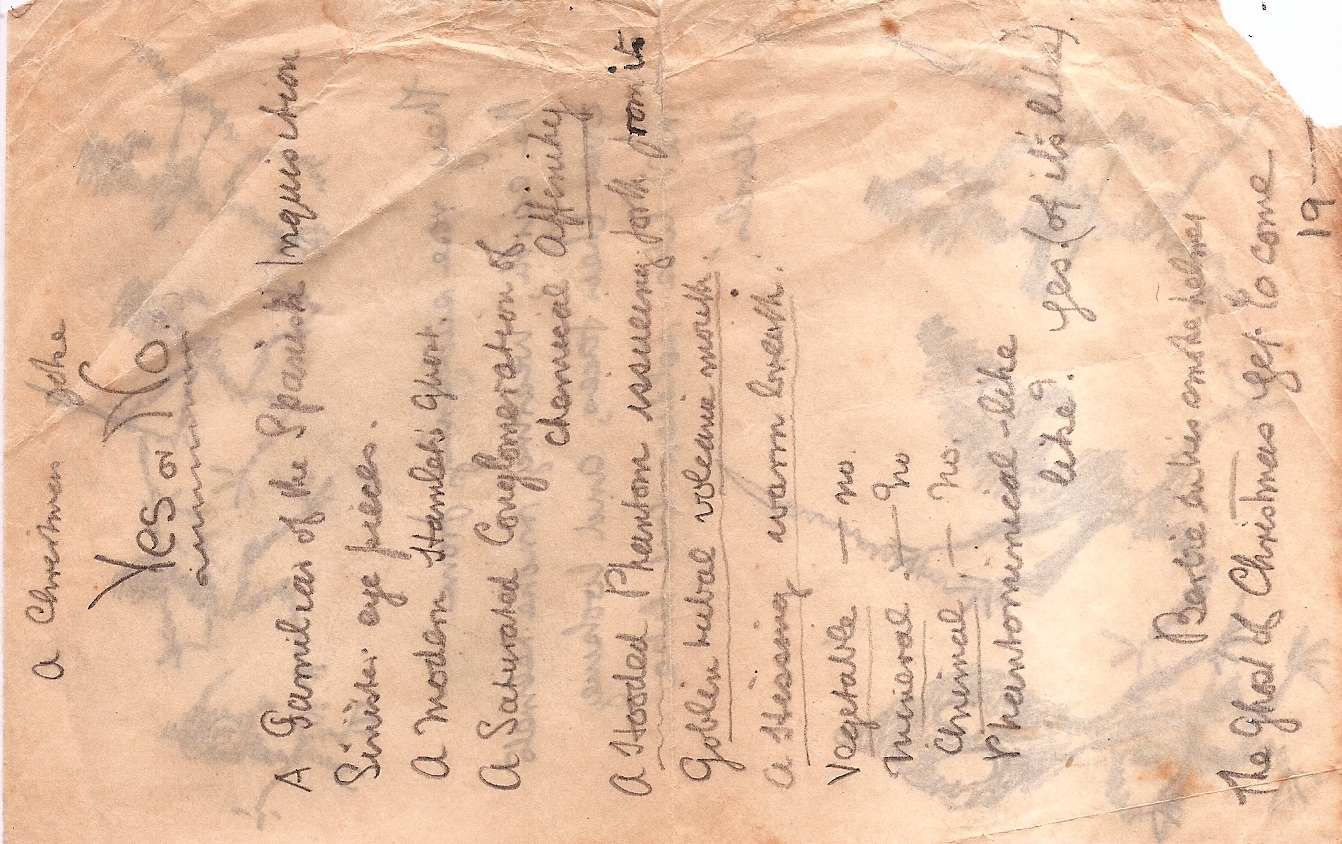 a Christmas Joke
Yes or No.
A Familiar of the Spanish Inquisition
Sinister eye pieces.
A modern Hamlet's Ghost.
A Saturated Conglomeration of
chemical affinity
A Hooded Phantom issueing forth from its
Goblin tubal volcanic mouth.
a Hissing warm breath.
Vegetable — no.
Mineral — no
Animal — no.
Phantomimical-like
like? yes (of its like)
in his smoke helmet
The Ghost of Christmas yet to come
19—